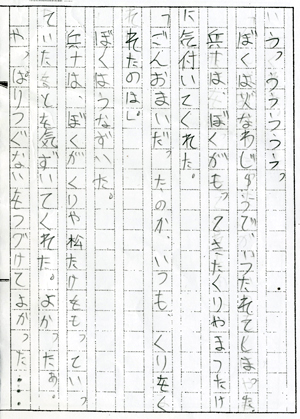 うっ。うううつうう。
ぼくは火なわじゅうで、いつたれてしまった
兵十は、ぼくがもってきたくりやまつたけ
に気付いてくれた。
「ごんおまいだったのか、いつも、くりをく
れたのは」
ぼくはうなずいた。
兵十は、ぼくがくりや松たけをもっていっ
ていたことを気ずいてくれた。よかったぁ。
やっぱりつぐないをつづけてよかった……